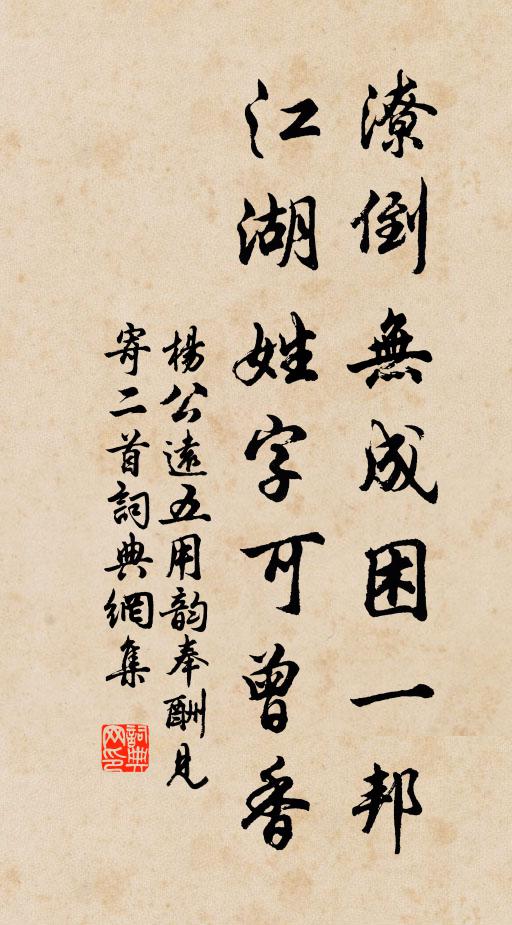 潦倒無成困一邦
江湖姓字可曾香
楊公遠五用韵奉酬見
寄二首詞典網集
詞典
网印